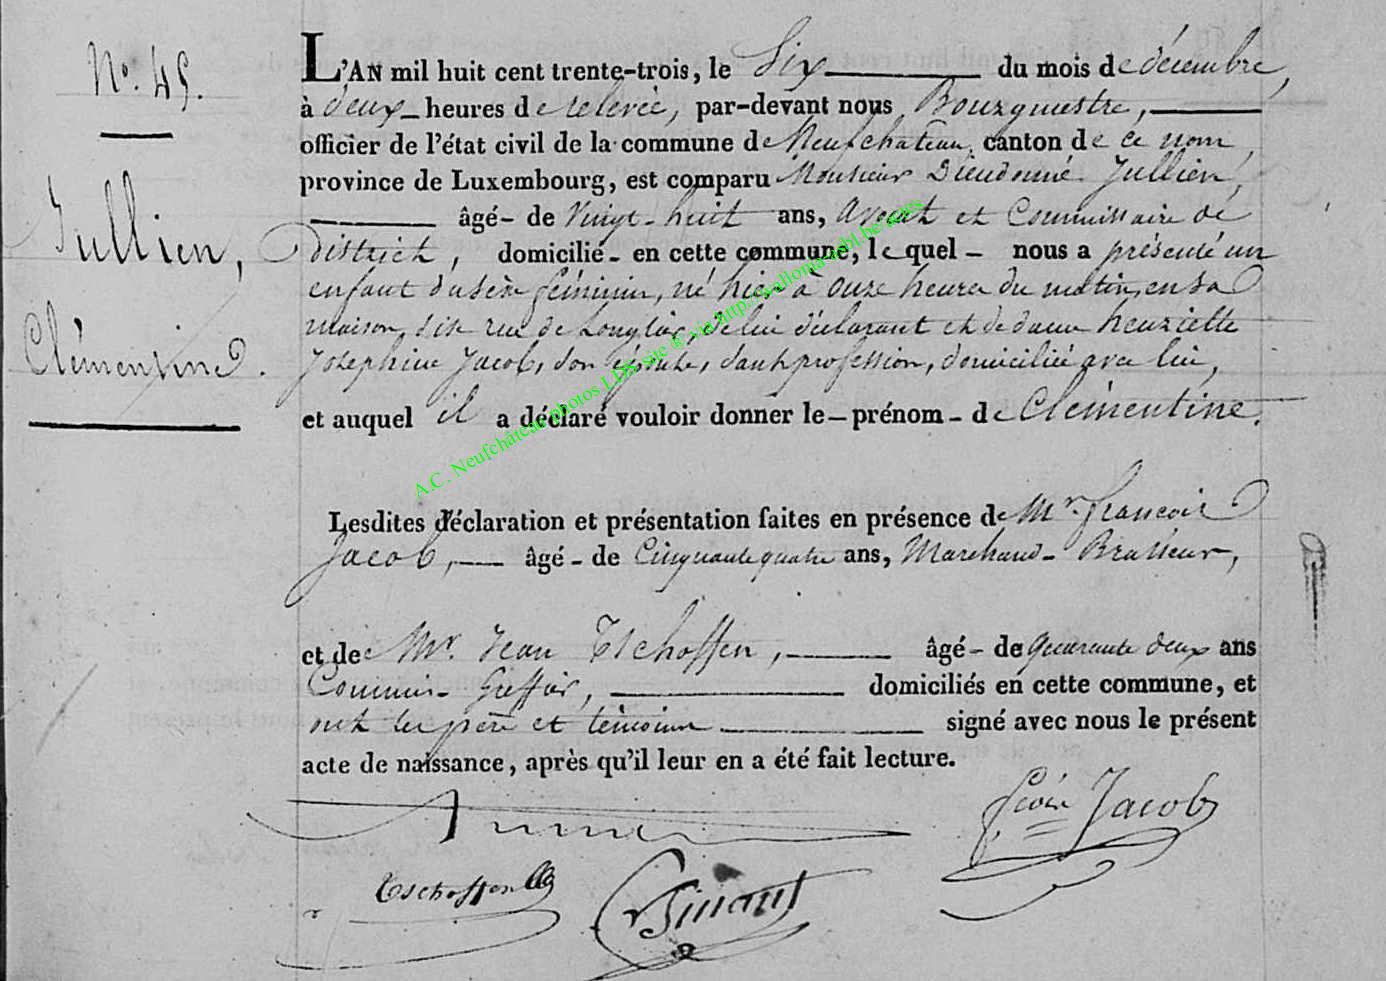 N°. 45.
Jullien,
Clémentine.
L'AN mil huit cent trente-trois, le Six du mois de décembre,
à deux heures de relevée, par-devant nous Bourgmestre,
officier de l'état civil de la commune de Neufchâteau, canton de ce nom,
province de Luxembourg, est comparu Monsieur Dieudonné Jullien,
âgé de Vingt-huit ans, Avocat et Commissaire de
District, domicilié en cette commune, lequel nous a présenté un
enfant du sèxe féminin, né hier à onze heures du matin, en sa
maison, sise rue de Longlier, de lui déclarant et de dame henriette
Joséphine Jacob, son épouse, sans profession, domiciliée avec lui,
et auquel il a déclaré vouloir donner le prénom de Clémentine.
Lesdites déclaration et présentation faites en présence de Mr. françois
Jacob, âgé de Cinquante quatre ans, Marchand-Brasseur,
et de Mr. Jean Tschoffen, âgé de quarante deux ans
Commis-Greffier, domiciliés en cette commune, et
ont les père et témoins signé avec nous le présent
acte de naissance, après qu'il leur en a été fait lecture.
Jacob
Tschoffen
A.C. Neufchâteau photos LDS site @ via http://wallonia-asbl.be/actes